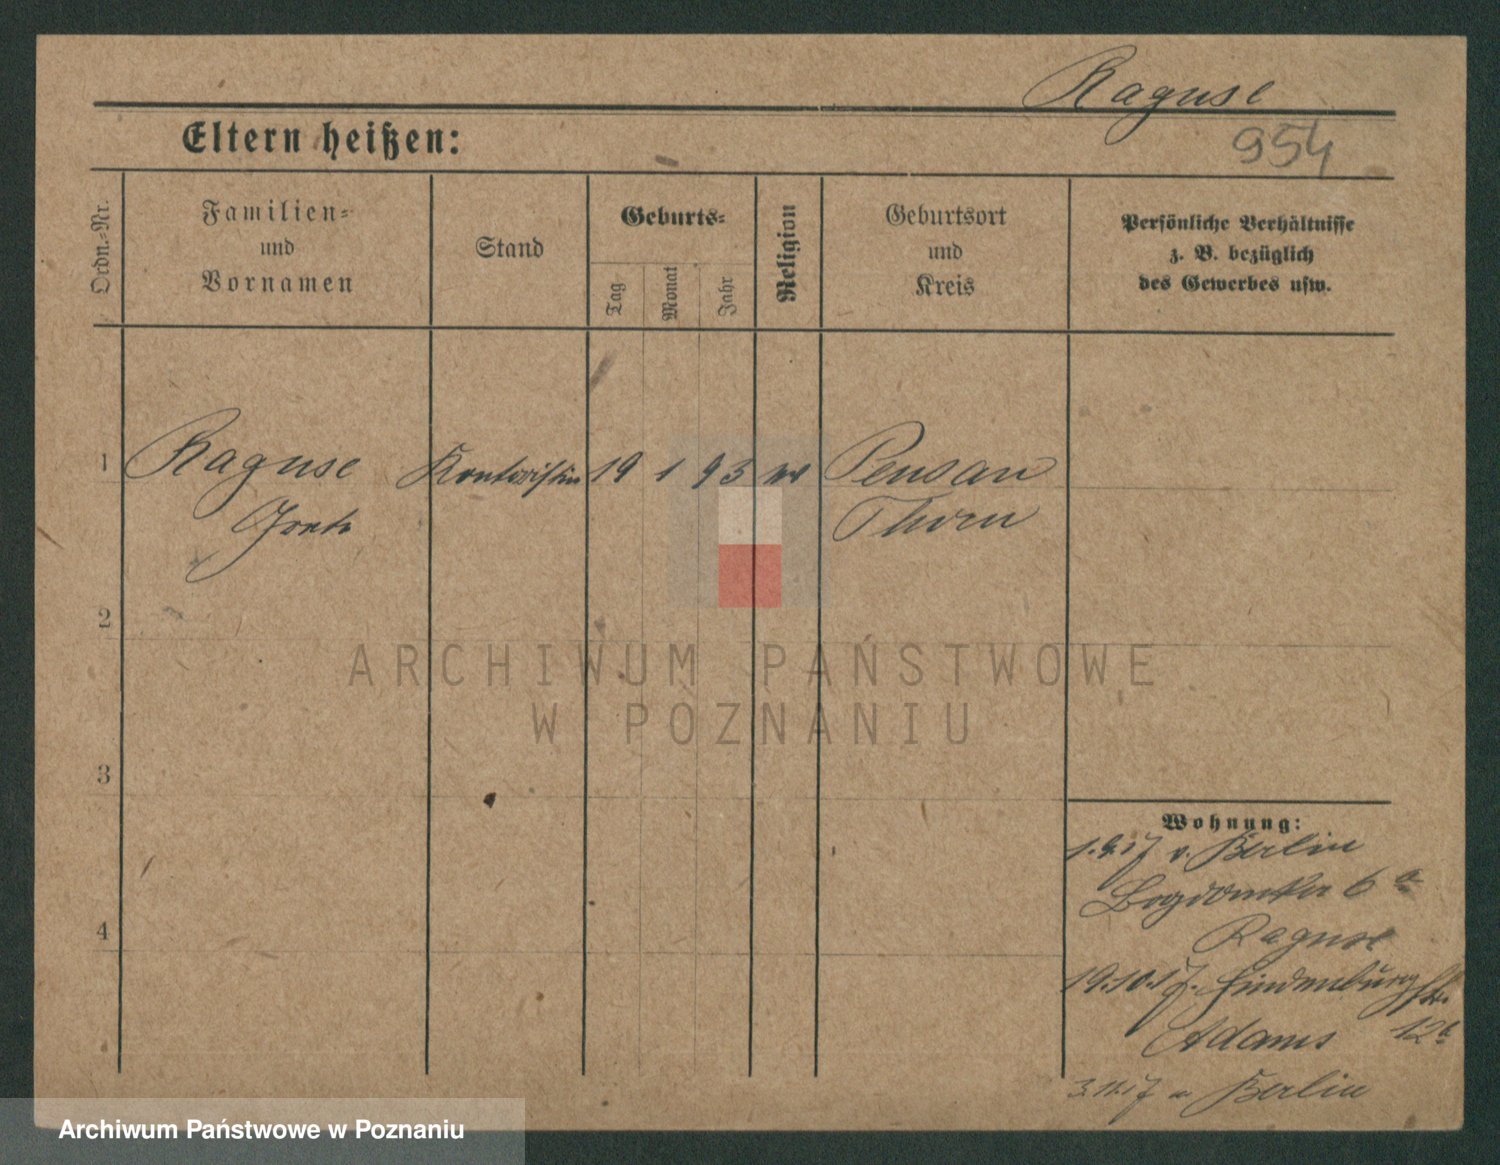 Raguse
954
Eltern heißen:
Ordn.-Nr.
Familien-
und
Vornamen
Stand
Geburts-
Tag
Monat
Jahr
Religion
Geburtsort
und
Kreis
Persönliche Verhältnisse
z. B. bezüglich
des Gewerbes usw.
1 Raguse Kontoristin 19 1 93 Pensau
Thorn
2
3
4
Wohnung:
1.9.17 v. Berlin
6 a
Raguse
19.10.17. Hindenburgstr.
Adams 12
3.11.17 n Berlin
ARCHIWUM PAŃSTWOWE
W POZNANIU
Archiwum Państwowe w Poznaniu